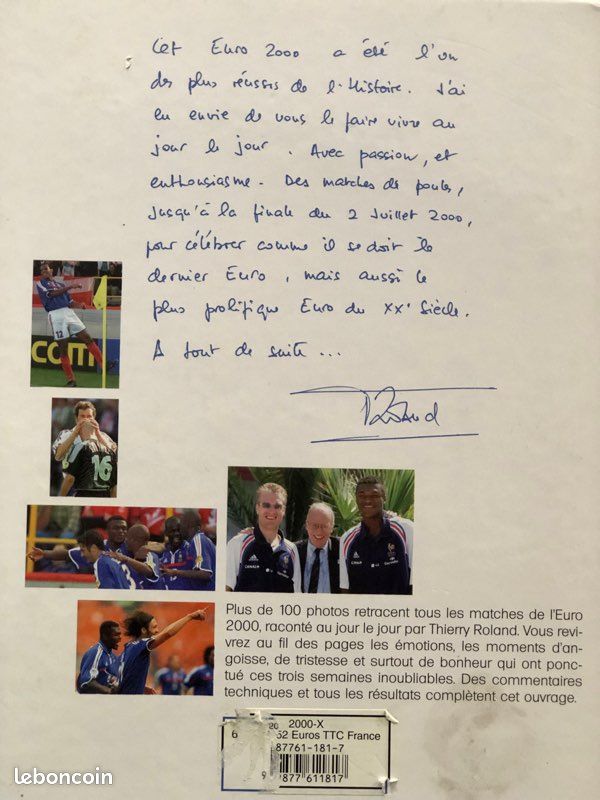 Cet Euro 2000 a été l'un
des plus réussis de l'Histoire. J'ai
eu envie de vous le faire vivre au
jour le jour. Avec passion, et
enthousiasme. Des matches de poules,
jusqu'à la finale du 2 Juillet 2000,
pour célébrer comme il se doit le
dernier Euro, mais aussi le
plus prolifique Euro du XXe Siècle.
A tout de suite ...
12
COM
16
3
Plus de 100 photos retracent tous les matches de l'Euro
2000, raconté au jour le jour par Thierry Roland. Vous revi-
vrez au fil des pages les émotions, les moments d'an-
goisse, de tristesse et surtout de bonheur qui ont ponc-
tué ces trois semaines inoubliables. Des commentaires
techniques et tous les résultats complètent cet ouvrage.
20 2000-X
6 52 Euros TTC France
87761-181-7
9 877611817
leboncoin